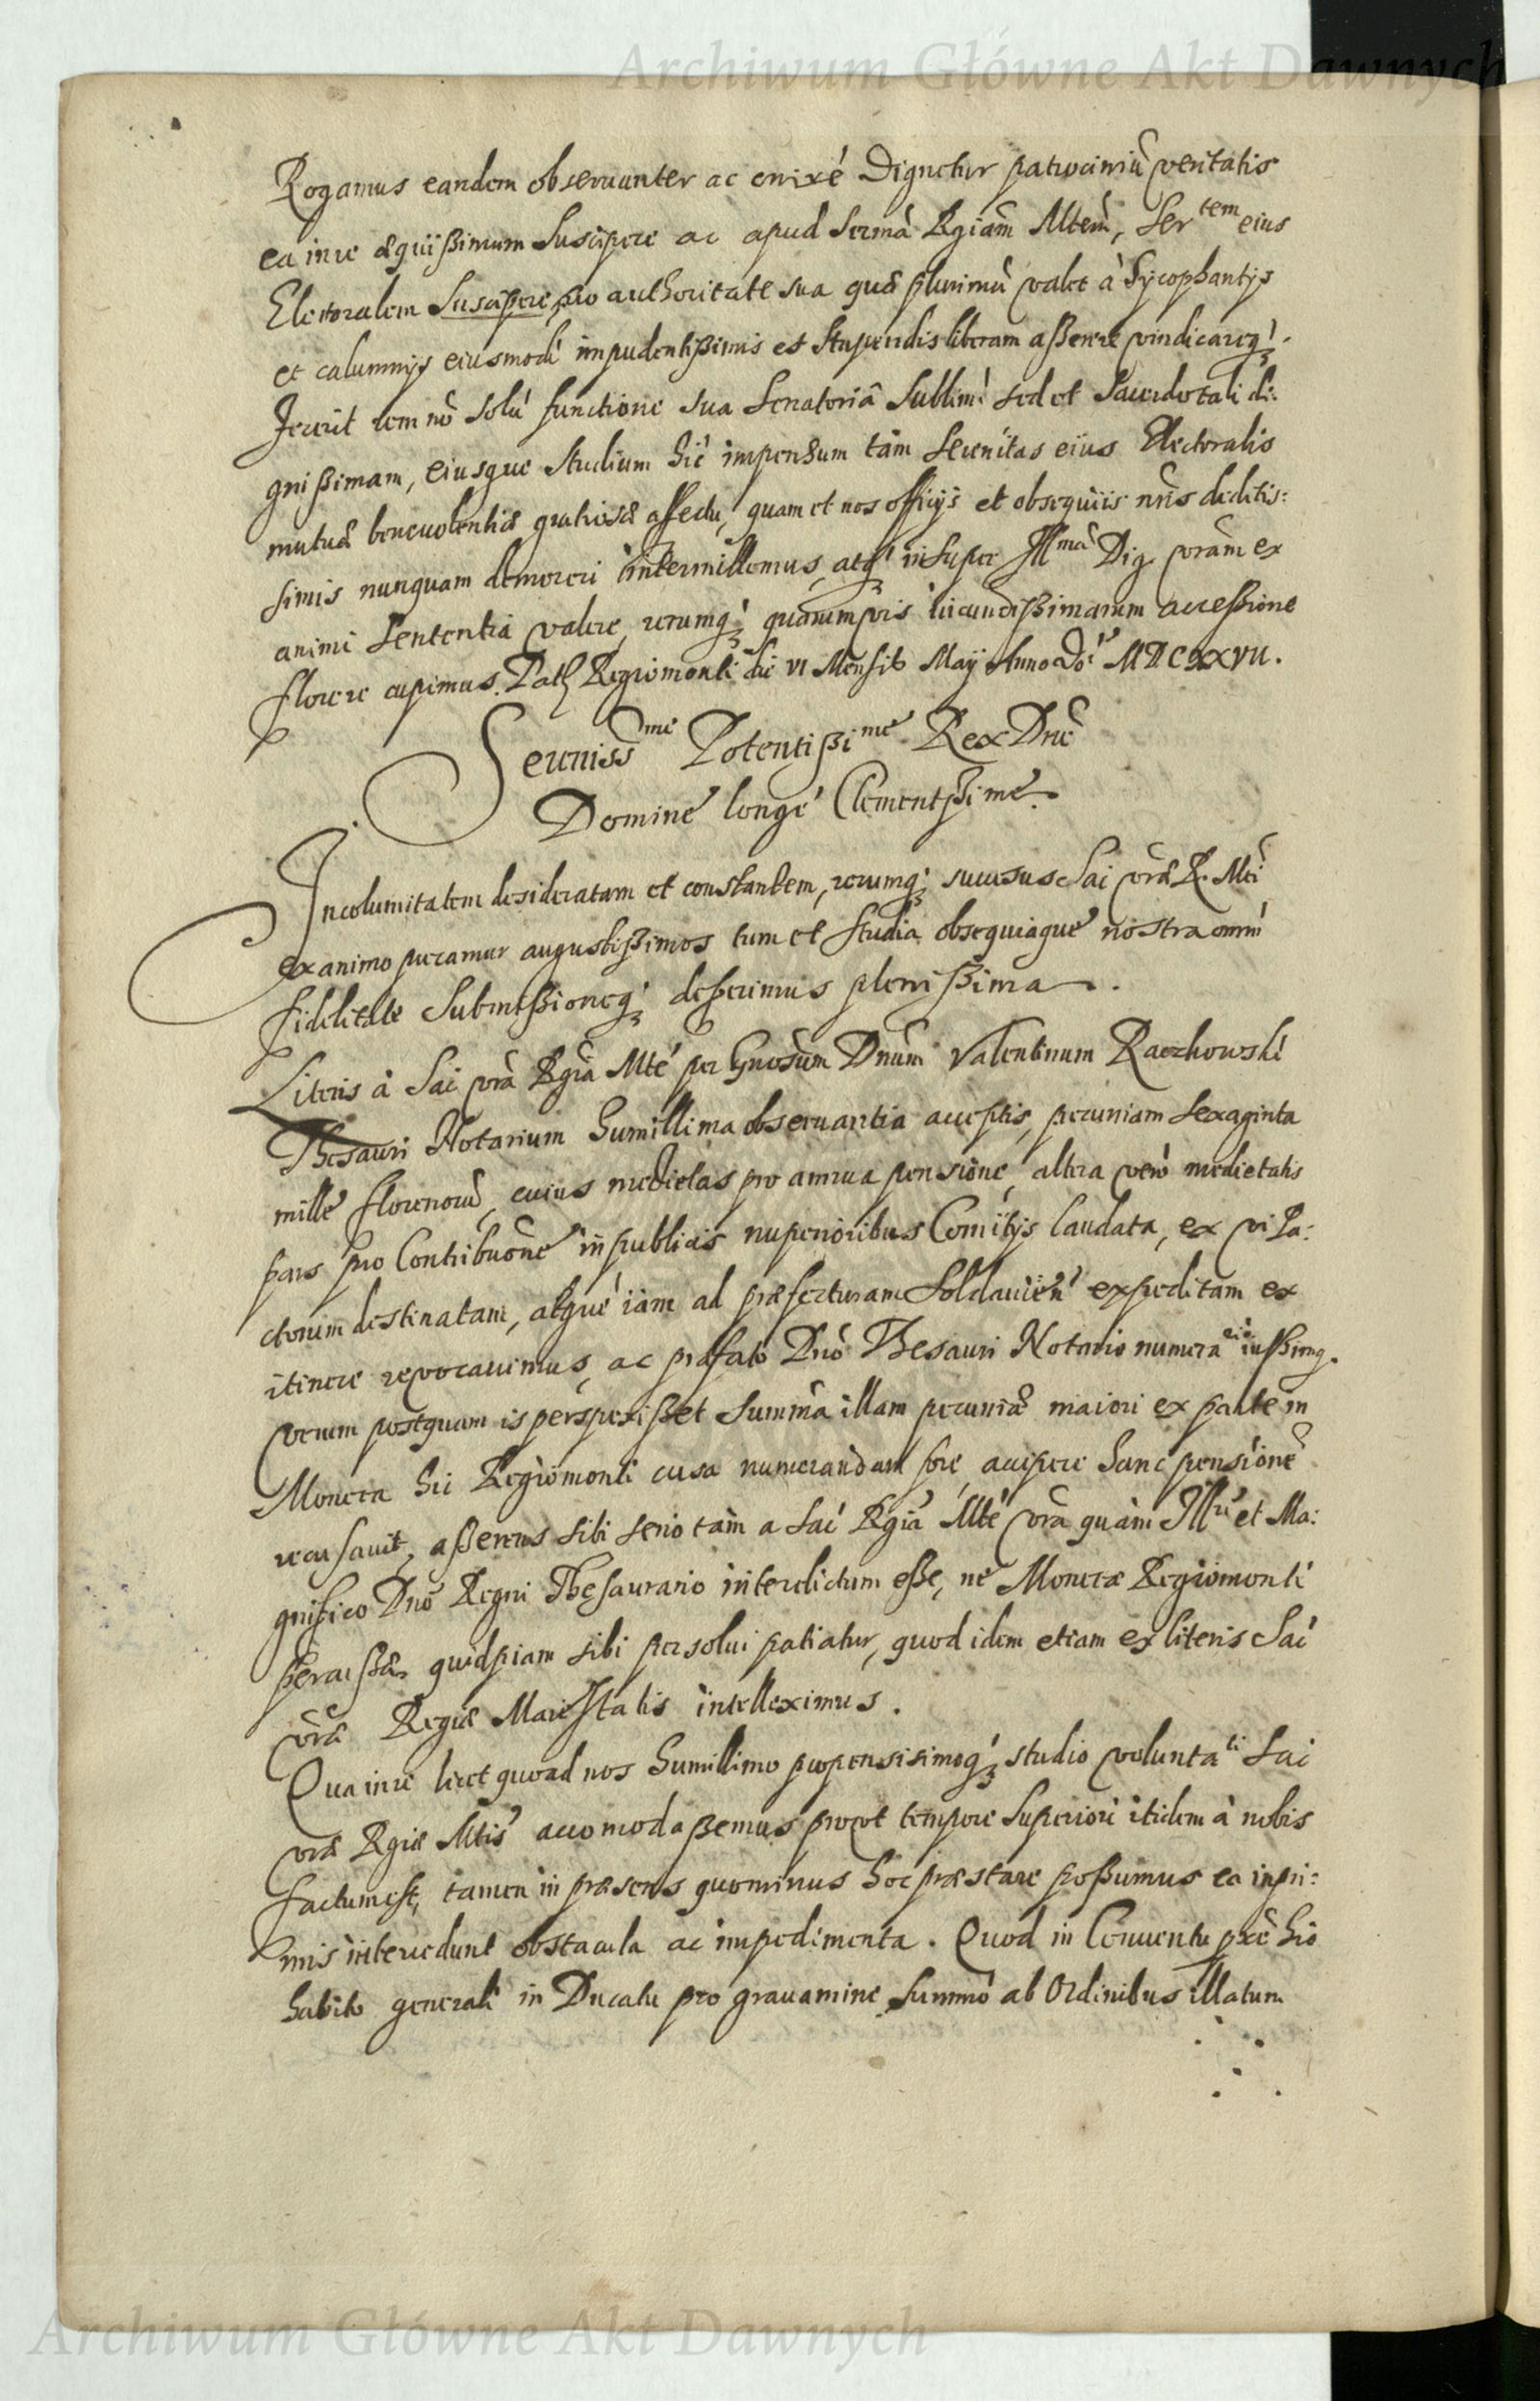 Archiwum Główne Akt Dawnych
Rogamus eandem obseruanter ac enixé Dignetur patrociniũ veritatis
ea in re æquißimum suscipere ac apud Sermã Rgiam̃ Mtem̃, Ser^tem eius
Electoralem suscipere, pro authoritate sua quã plurimũ valet à Sycophantijs
et calumnijs eiusmodi impudentißimis et stupendis liberam aßerere vindicareq́;.
Fecerit rem nõ solũ functione sua Senatoriâ sublimi sed et Sacerdotali di:
gnißimam, eiusque studium hic impensum tàm Serenitas eius Electoralis
mutuæ beneuolentiæ gratiosæ affectu, quam et nos officijs et obsequijs nr̃is deditis:
simis nunquam demereri intermittemus, atq́; insuper Ill^mã Dig. vrãm ex
animi sententia valere, rerumq́; quarumvis iucundißimarum acceßione
florere cupimus. Datꝭ Regiomonti die VI Mensis Maij Anno Dni MDCXXVII.
Sereniss^me Potentißi^me Rex Dne
Domine longé Clementißime.
Incolumitatem desideratam et constantem, rerumq́; successus Sac vræ R. Mti
ex animo precamur augustißimos tum et studia obsequiaque nostra omni
fidelitate submißioneq́; deferimus plenißima.
Literis à Sac vrã Rgiã Mte per Gnosum Dnum Valentinum Raczkowski
Thesauri Notarium humillima obseruantia acceptis, pecuniam sexaginta
mille florenorũ, cuius medietas pro annua pensione, altera verò medietatis
pars pro Contribuõne in publicis nuperioribus Comitijs laudata, ex vi Pa:
ctorum destinatam, atque iam ad præfecturam Soldauien expeditam ex
itinere revocauimus, ac præfato Dnõ Thesauri Notario numerã^ri iußimq.
verum postquam is perspexißet summã illam pecuniæ maiori ex parte in
Moneta hic Regiomonti cusa numerandam fore, accipere hanc pensionẽ
recusauit, aßerens sibi serio tàm a Sac Rgiã Mte vrã quàm Ill^ri et Ma:
gnifico Dnõ Regni Thesaurario interdictum eße, ne Monetæ Regiomonti
quidpiam sibi persolui patiatur, quod idem etiam ex literis Sac
vræ Regiæ Maiestatis intelleximus.
Qua in re licet quoad nos humillimo propensissimoq́; studio volunta^ti Sac
vræ Rgiæ Mtis accomodaßemus prout tempore superiori itidem à nobis
factum est, tamen in præsens quominus hoc præstare poßumus ea inpri:
mis intercedunt obstacula ac impedimenta. Quod in Conuentu hic
habito generali in Ducatu pro grauamine summo ab Ordinibus illatum
Archiwum Główne Akt Dawnych